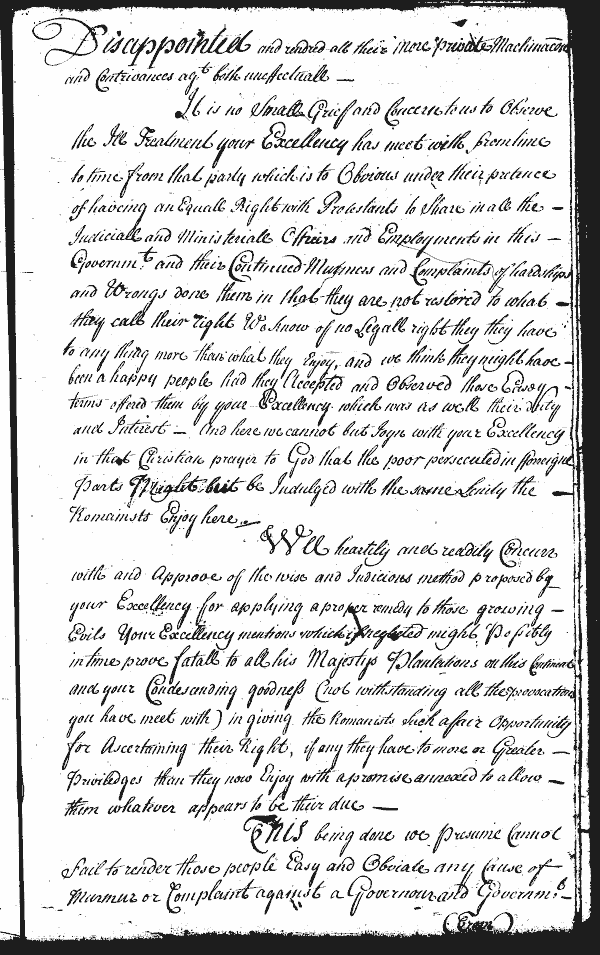 Disappointed and rendred all their more private Machinacons
and Contrivances agt. both uneffectuall —
It is no Small Grief and Concern to us to Observe
the Ill Treatment your Excellency has meet with from time
to time from that party which is to Obvious under their pretence
of haveing an Equall Right with Protestants to Share in all the —
Judiciall and Ministeriall Offices and Employments in this —
Governmt. and their Continued Murmers and Complaints of hardships
and Wrongs done them in that they are not restored to what —
they call their right We know of no Legall right they they have
to any thing more than what they Enjoy, and we think they might have —
been a happy people had they Accepted and Observed those Easey —
terms offered them by your Excellency which was as well their duty
and Interest — And here we cannot but Joyn with your Excellency
in that Christian prayer to God that the poor persecuted in fforreign
Parts Might but be Indulged with the same Lenity the —
Romanists Enjoy here —
Wee heartily and readily Concurr
with and Approve of the wise and Judicious method proposed by
your Excellency for applying a proper remedy to those growing —
Evils Your Excellency mentions which if neglected might Possibly
in time prove fatall to all his Majestys Plantations on this Continent
and your Condescending goodness (notwithstanding all the provocation
you have meet with) in giving the Romanists Such a fair Opportunity
for Ascertaining their Right, if any they have to more or Greater —
Priviledges than they now Enjoy with a promise annexed to allow —
them whatever appears to be their due —
This being done we Presume Cannot
fail to render those people Easy and Obviate any Cause of
Murmur or Complaint against a Governour and Governmt. —
(Even)